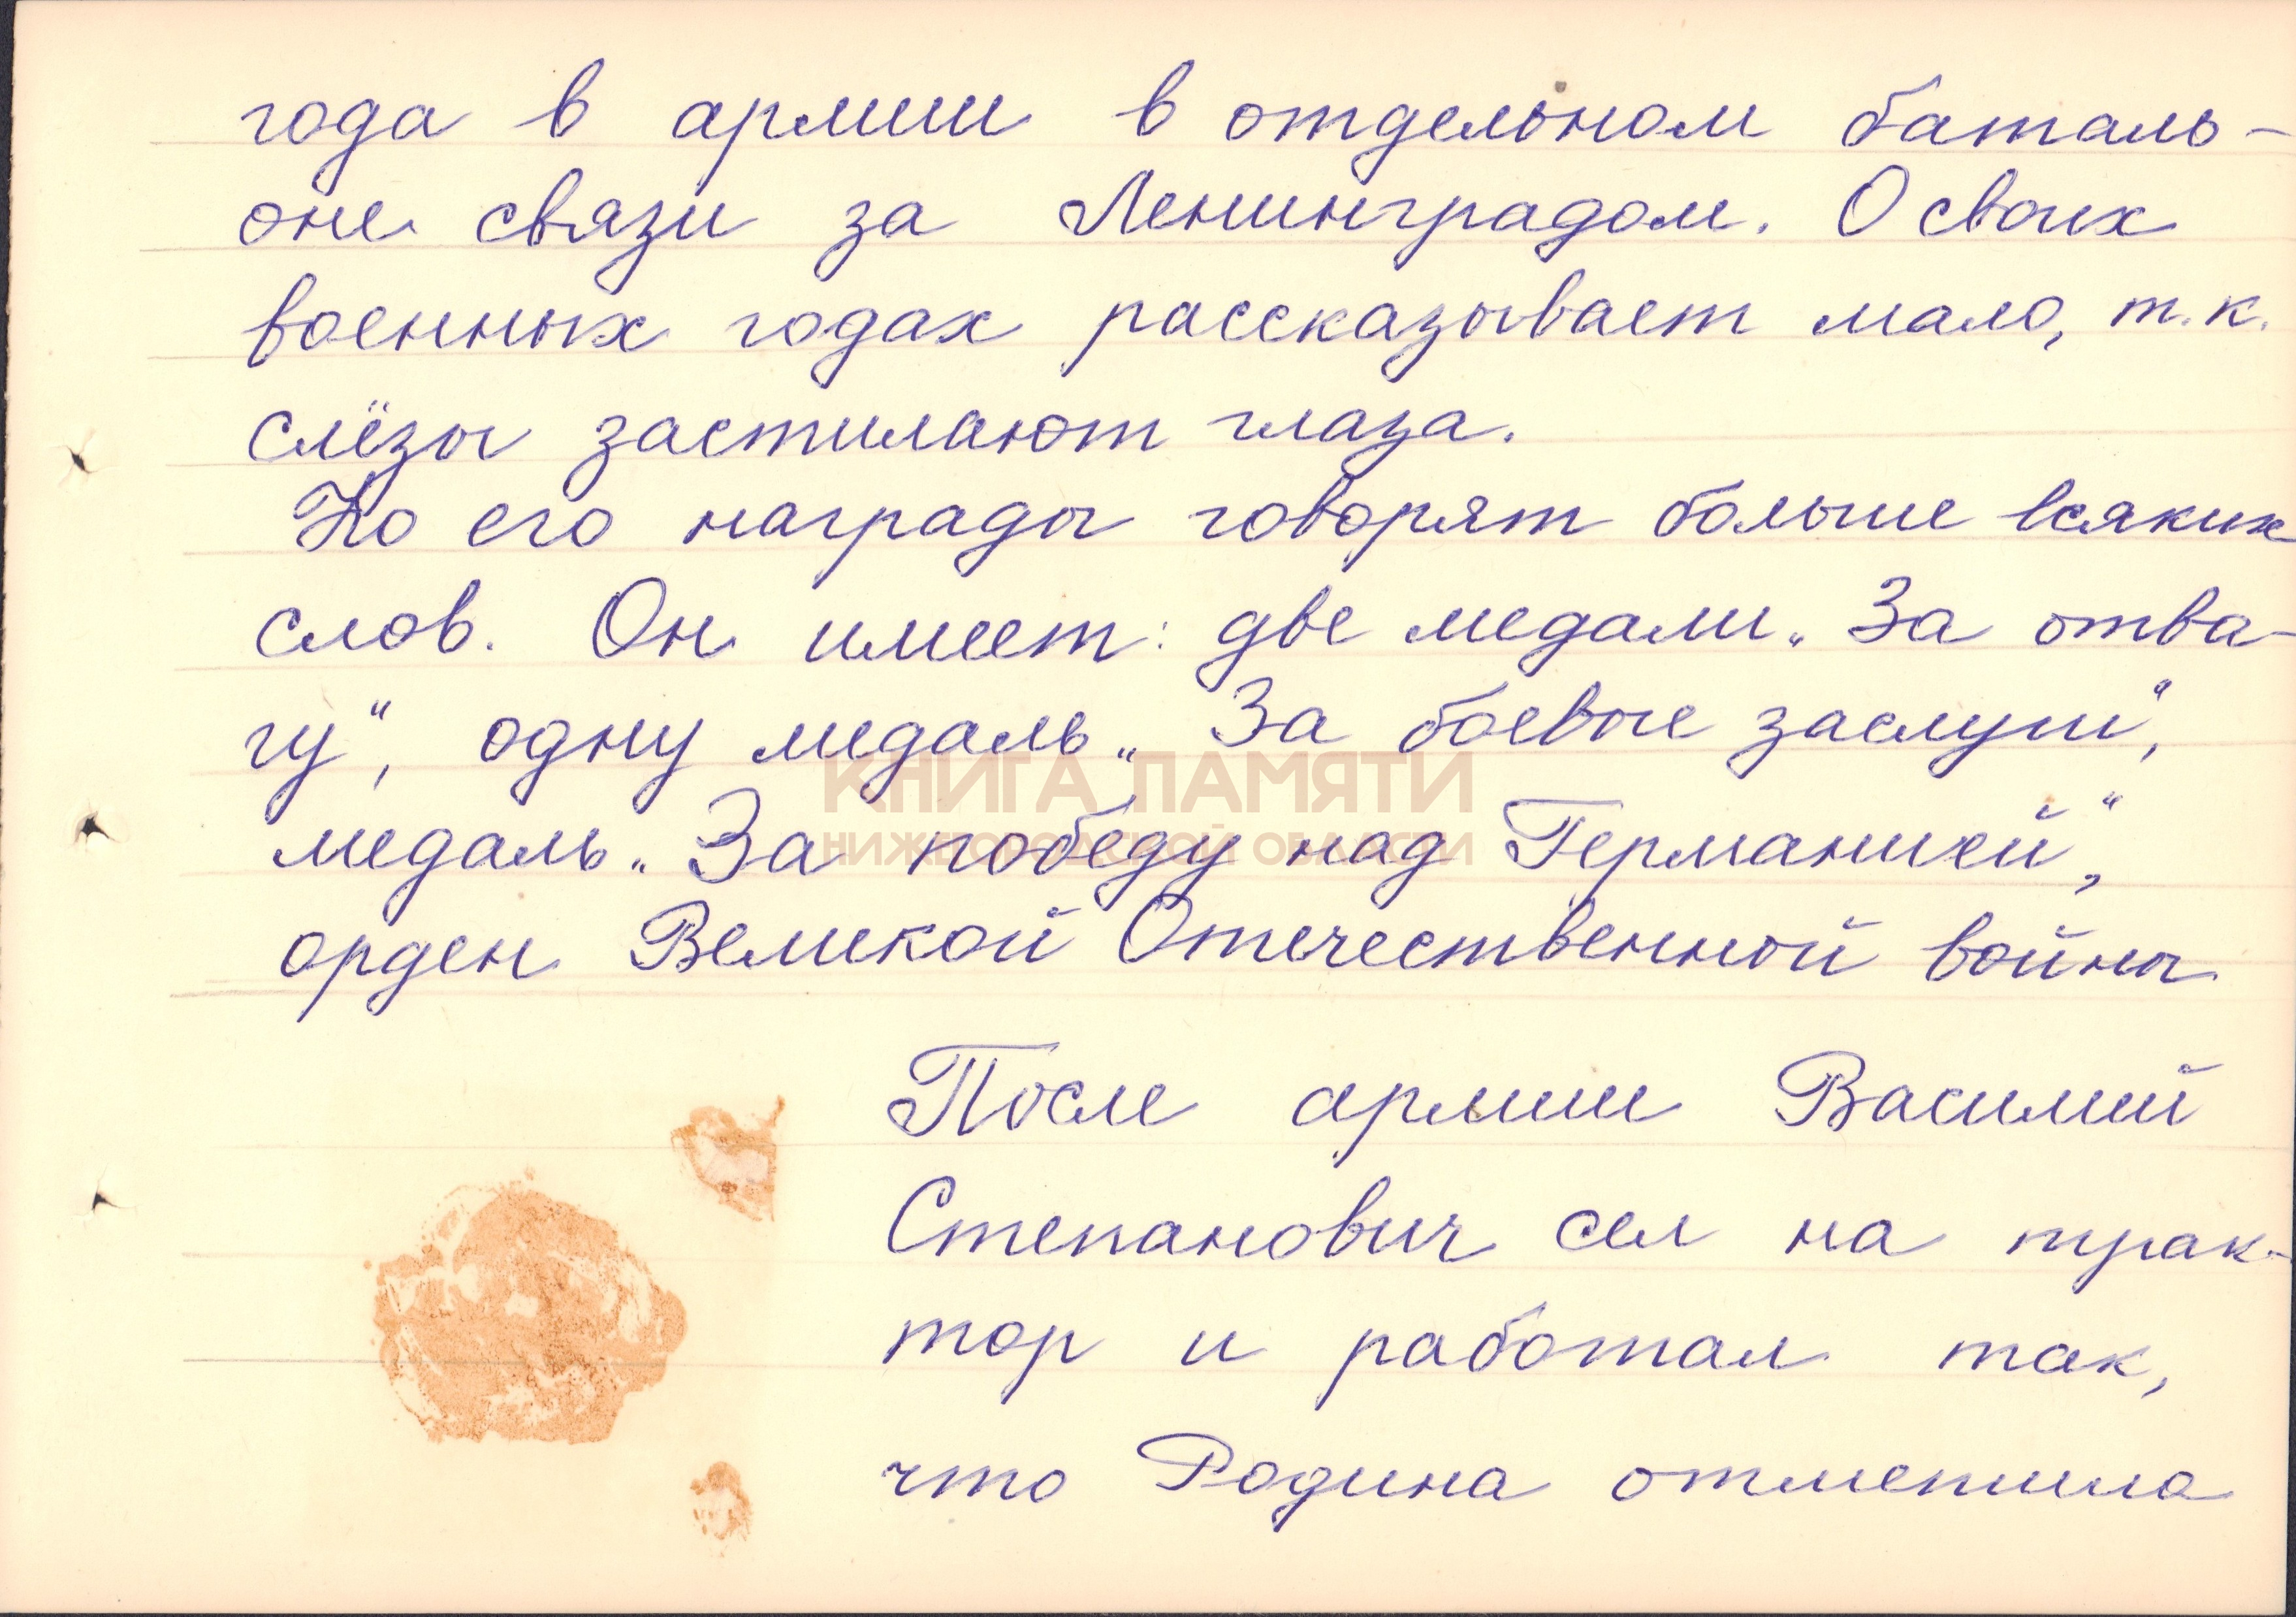 года в армии в отдельном баталь-
оне связи за Ленинградом. О своих
военных годах рассказывает мало, т.к.
слёзы застилают глаза.
Но его награды говорят больше всяких
слов. Он имеет: две медали „За отва-
гу“, одну медаль „За боевые заслуги“,
КНИГА ПАМЯТИ
НИЖЕГОРОДСКОЙ ОБЛАСТИ
медаль „За победу над Германией“,
орден Великой Отечественной войны
После армии Василий
Степанович сел на трак-
тор и работал так,
что Родина отметила